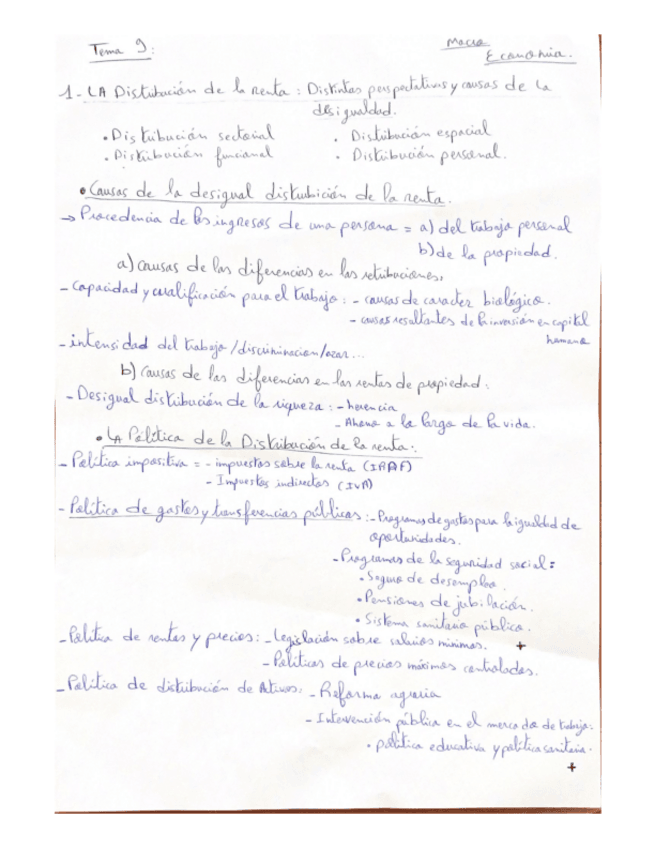 Tema 9:
Macro
Economia.
1- LA Distribución de la renta: Distintas perspectativas y causas de la
desigualdad.
• Distribución sectorial • Distribución espacial
• Distribución funcional • Distribución personal.
• Causas de la desigual distribición de la renta.
→ Procedencia de los ingresos de una persona = a) del trabajo personal
b) de la propiedad.
a) causas de las diferencias en las retribuciones:
- Capacidad y cualificación para el trabajo: - causas de caracter biológico.
- causas resultantes de la inversión en capital
humano
- intensidad del trabajo / discriminacion / azar...
b) Causas de las diferencias en las rentas de propiedad:
- Desigual distribución de la riqueza: - herencia
- Ahorro a lo largo de la vida.
• LA Política de la Distribución de la renta:
- Política impositiva = - impuestos sobre la renta (IRPF)
- Impuestos indirectos (IVA)
- Política de gastos y transferencias públicas: - Programas de gastos para la igualdad de
oportunidades.
- Programas de la seguridad social:
• Seguro de desempleo.
• Pensiones de jubilación.
• Sistema sanitario público.
- Política de rentas y precios: - Legislación sobre salarios mínimos. +
- Políticas de precios máximos controlados.
- Política de distribución de Activos: - Reforma agraria
- Intervención pública en el mercado de trabajo:
• política educativa y política sanitaria.
+